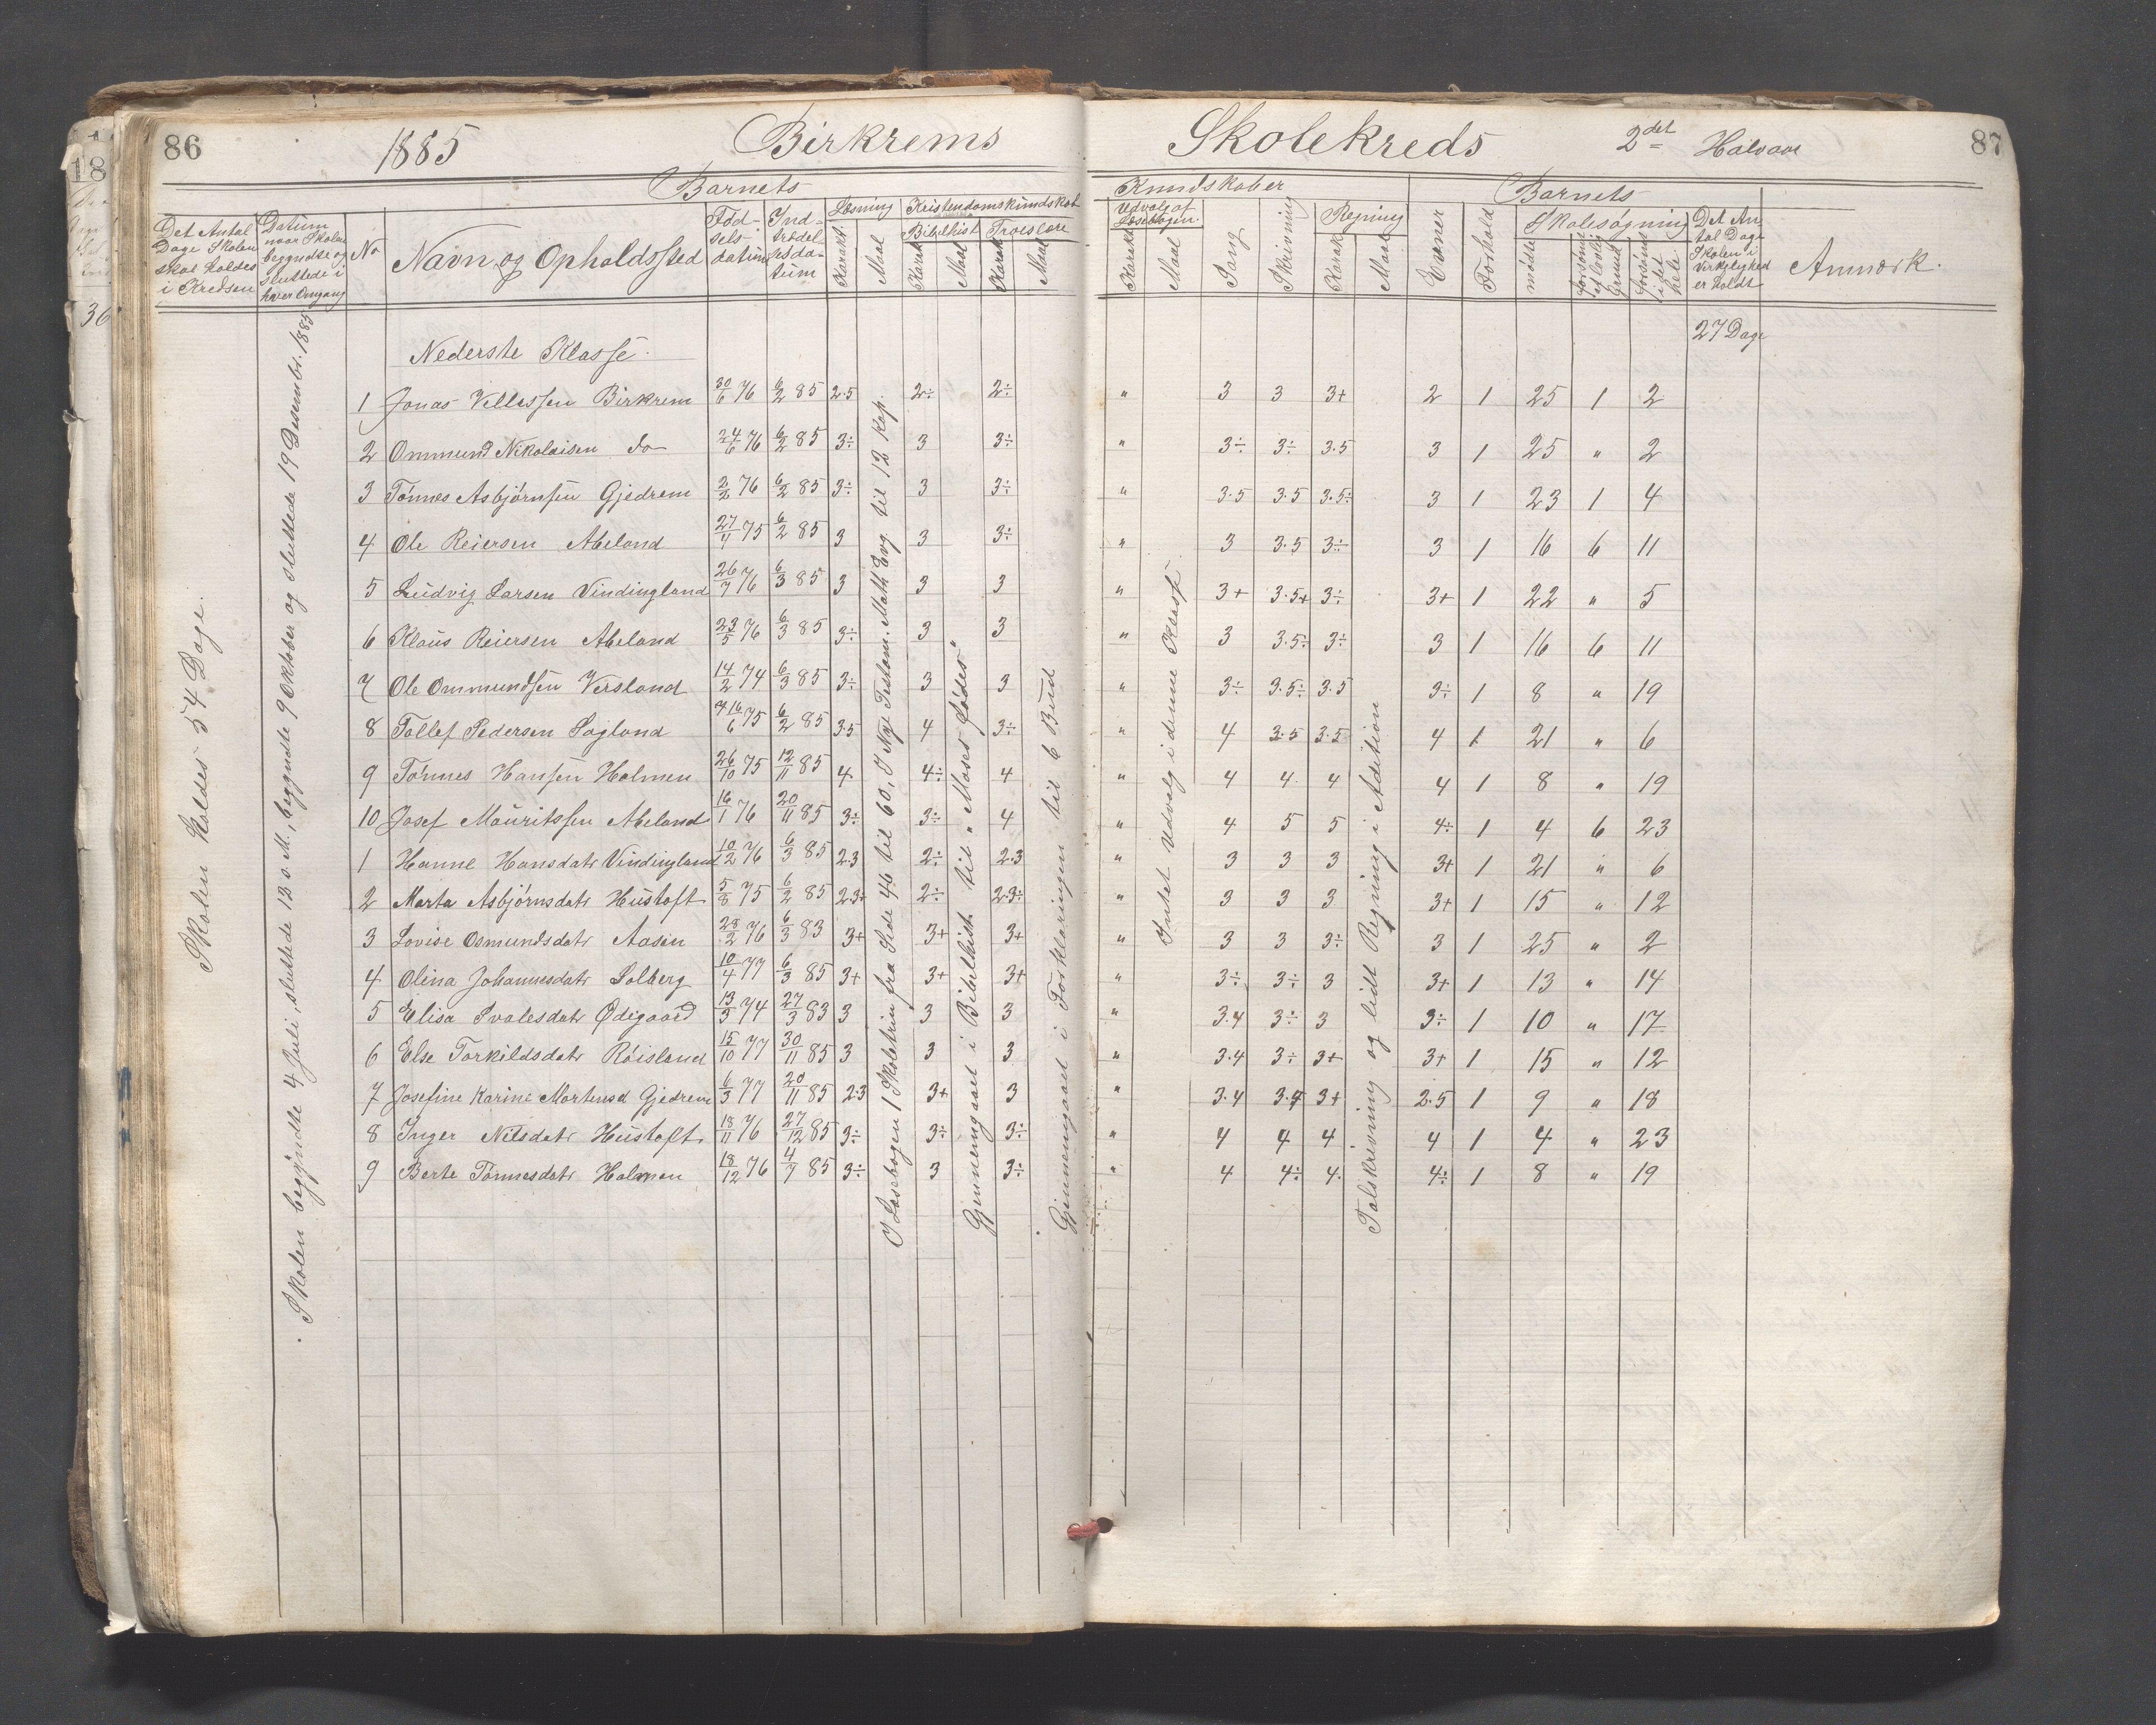 86 1885 Birkrems Skolekreds 2det Halvaar 87
Barnets Kundskaber Barnets
Det Antal Dage Skolen skal holdes i Kredsen
Datum naar Skolen begyndte og sluttede i hver Omgang
No
Navn og Opholdssted
Fødselsdatum
Indtrædelsesdatum
Læsning Karakt. Maal
Kristendomskundskab
Bibelhist. Karak. Maal
Troeslære Karak. Maal
Udvalg af Læsebogen. Karakt. Maal
Sang
Skrivning
Regning Karak. Maal
Evner
Forhold
Skolesøgning
mødte
forsømt af lovlig Grund
forsømt i det hele
Det Antal Dage Skolen i Virkelighed er holdt
Anmærk.
Skolen holdes 54 Dage.
Skolen begyndte 4 Juli, sluttede 18 s. M., begyndte 9 Oktober og sluttede 19 Desember. 1885
27 Dage
Nederste Klasse.
1 Jonas Vellessen Birkrem 30/6 76 6/2 85 2.5 2÷ 2÷ " 3 3 3+ 2 1 25 1 2
2 Ommund Nikolaisen do 24/6 76 6/2 85 3÷ 3 3÷ " 3÷ 3÷ 3.5 3 1 25 " 2
3 Tønnes Asbjørnsen Gjedrem 2/2 76 6/2 85 3÷ 3 3÷ " 3.5 3.5 3.5÷ 3 1 23 1 4
4 Ole Reiersen Abeland 27/4 75 6/2 85 3 3 3÷ " 3 3.5 3÷ 3 1 16 6 11
5 Ludvig Larsen Vindingland 26/7 76 6/3 85 3 3 3 " 3+ 3.5+ 3÷ 3+ 1 22 " 5
6 Klaus Reiersen Abeland 23/5 76 6/3 85 3÷ 3 3 " 3 3.5÷ 3÷ 3 1 16 6 11
7 Ole Ommundsen Versland 14/2 74 6/3 85 3÷ 3 3 " 3÷ 3.5÷ 3.5 3÷ 1 8 " 19
8 Tollef Pedersen Sagland 16/6 75 6/2 85 3.5 4 3÷ " 4 3.5 3.5 4 1 21 " 6
9 Tønnes Hansen Holmen 26/10 75 12/11 85 4 4÷ 4 " 4 4 4 4 1 8 " 19
10 Josef Mauritssen Abeland 16/1 76 20/11 85 3÷ 3÷ 4 " 4 5 5 4÷ 1 4 6 23
1 Hanne Hansdatr Vindingland 10/2 76 6/3 85 2.3 2÷ 2.3 " 3 3 3 3+ 1 21 " 6
2 Marta Asbjørnsdatr Hustoft 5/8 75 6/2 85 2.3+ 2÷ 2.3÷ " 3 3 3 3+ 1 15 " 12
3 Lovise Osmundsdatr Aasen 28/2 76 6/3 83 3+ 3+ 3+ " 3 3 3÷ 3 1 25 " 2
4 Olina Johannesdatr Solberg 10/4 77 6/3 85 3+ 3+ 3+ " 3÷ 3÷ 3 3+ 1 13 " 14
5 Elisa Svalesdatr Ødegaard 13/3 74 27/3 83 3 3 3 " 3.4 3÷ 3 3÷ 1 10 " 17
6 Else Torkildsdatr Røisland 15/10 77 30/11 85 3 3 3 " 3.4 3÷ 3+ 3+ 1 15 " 12
7 Josefine Karine Martensd Gjedrem 6/3 77 20/11 85 2.3 3+ 3 " 3.4 3.4 3+ 2.5 1 9 " 18
8 Inger Nilsdatr Hustoft 18/11 76 27/12 85 3÷ 3÷ 3÷ " 4 4 4 4 1 4 " 23
9 Berte Tønnesdatr Holmen 18/12 76 4/7 85 3÷ 3 3÷ " 4 4÷ 4 4÷ 1 8 " 19
I Læsebogen 1 Skoletrin fra Side 46 til 60, I Nye Testam. Matth Evg. til 12 Kap.
Gjennemgaaet i Bibelhist. til "Moses fødes".
Gjennemgaaet i Forklaringen til 6 Bud
Intet Udvalg i denne Klasse
Talskrivning og lidt Regning i Adition